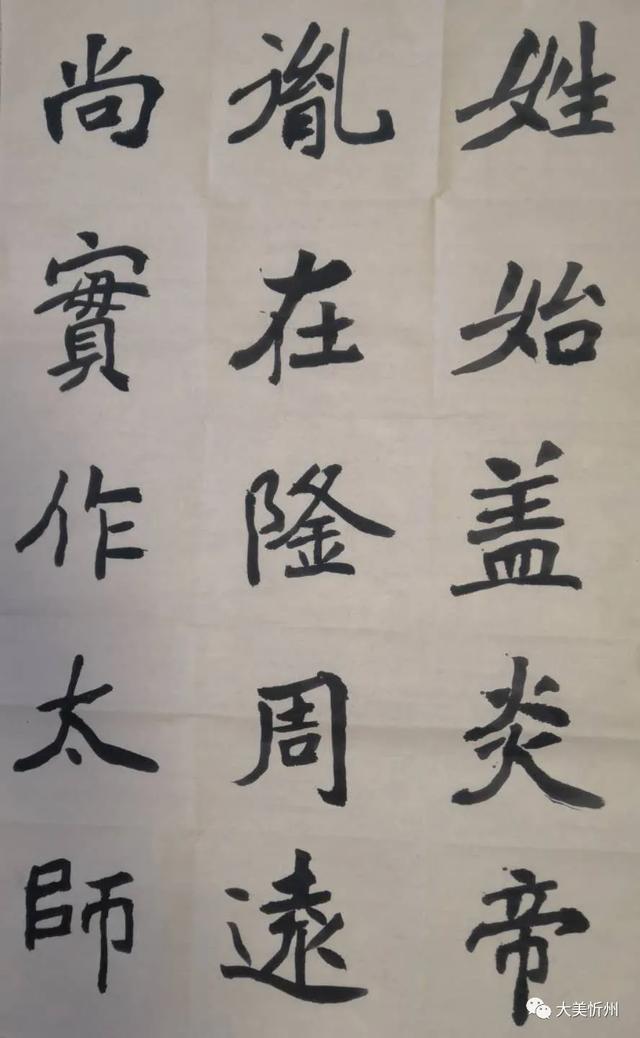 姓始盖炎帝
胤在隆周遠
尚實作太師
大美忻州